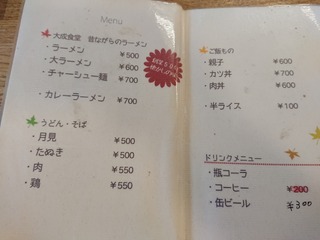 Menu
大成食堂 昔ながらのラーメン
・ラーメン ¥500
・大ラーメン ¥600
・チャーシュー麺 ¥700
・カレーラーメン ¥700
うどん・そば
・月見 ¥500
・たぬき ¥500
・肉 ¥550
・鶏 ¥550
ご飯もの
・親子 ¥600
・カツ丼 ¥700
・肉丼 ¥600
・半ライス ¥100
ドリンクメニュー
・瓶コーラ
・コーヒー ¥200
・缶ビール ¥300